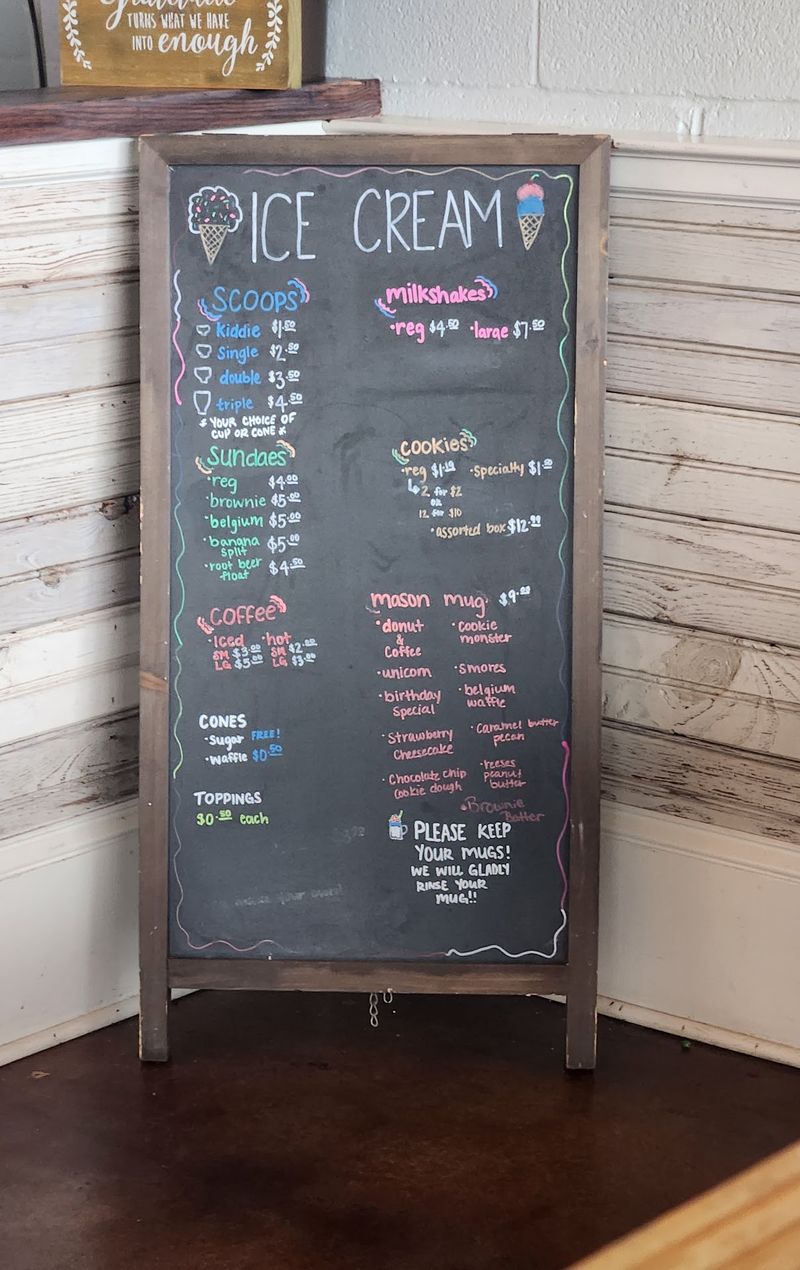 Gratitude
TURNS WHAT WE HAVE
INTO enough
ICE CREAM
SCOOPS
kiddie $1.50
Single $2.50
double $3.50
triple $4.50
* YOUR CHOICE OF
CUP OR CONE *
Sundaes
• reg $4.00
• brownie $5.00
• belgium $5.00
• banana split $5.00
• root beer float $4.50
Coffee
• Iced • hot
SM $3.00 SM $2.00
LG $5.00 LG $3.00
CONES
• Sugar FREE!
• Waffle $0.50
TOPPINGS
$0.50 each
milkshakes
• reg $4.50 • large $7.50
cookies
• reg • specialty
2 for $2
OR
12 for $10
• assorted box
mason mug
• donut & Coffee • cookie monster
• unicorn • smores
• birthday Special • belgium waffle
• Strawberry Cheesecake • Caramel butter pecan
• Chocolate chip cookie dough • reeses peanut butter
• Brownie Batter
PLEASE KEEP
YOUR MUGS!
WE WILL GLADLY
RINSE YOUR
MUG!!